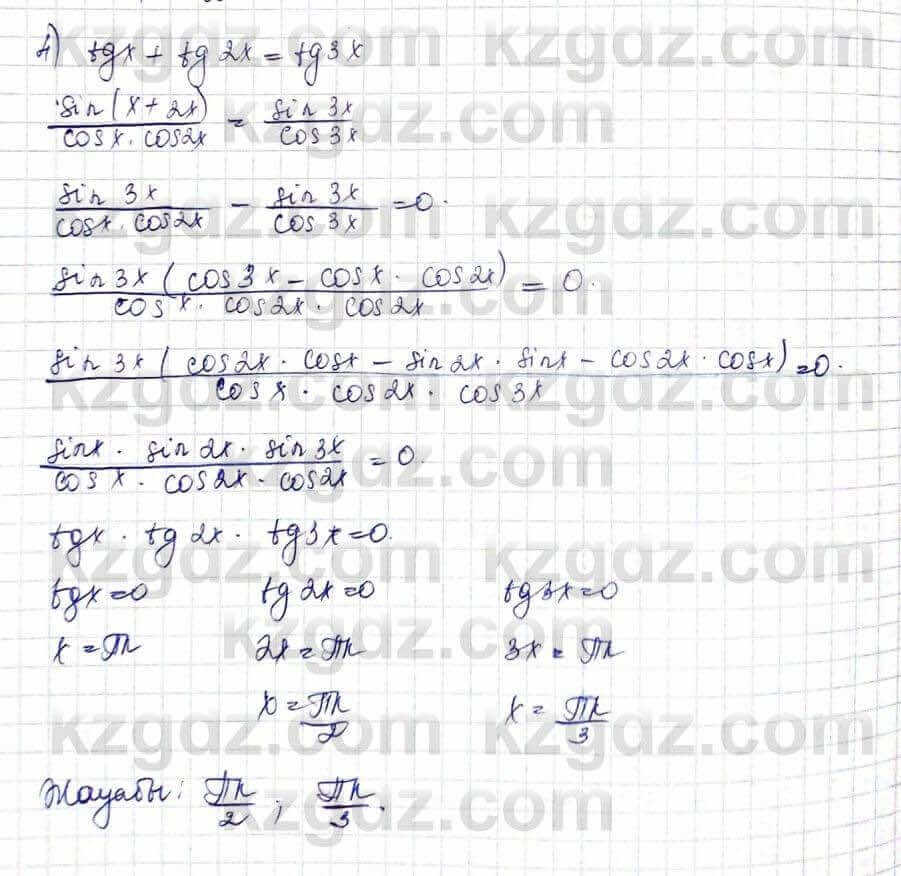 4) tgx + tg 2x = tg3x
sin(x + 2x) / cosx · cos2x = sin 3x / cos 3x
sin 3x / cosx · cos2x − sin 3x / cos 3x = 0.
sin3x ( cos3x − cosx · cos2x) / cos x · cos2x · cos2x = 0.
sin 3x ( cos2x · cosx − sin2x · sinx − cos2x · cosx) / cos x · cos2x · cos3x = 0.
sinx · sin 2x · sin 3x / cos x · cos2x · cos2x = 0.
tgx · tg 2x · tg3x = 0.
tgx = 0 tg 2x = 0 tg3x = 0
x = πn 2x = πn 3x = πn
x = πn/2 x = πn/3
Жауабы: πn/2 ; πn/3.
kzgdz.com kzgdz.com
kzgdz.com
kzgdz.com kzgdz.com
kzgdz.com
kzgdz.com kzgdz.com
kzgdz.com
kzgdz.com kzgdz.com
kzgdz.com
kzgdz.com kzgdz.com
kzgdz.com